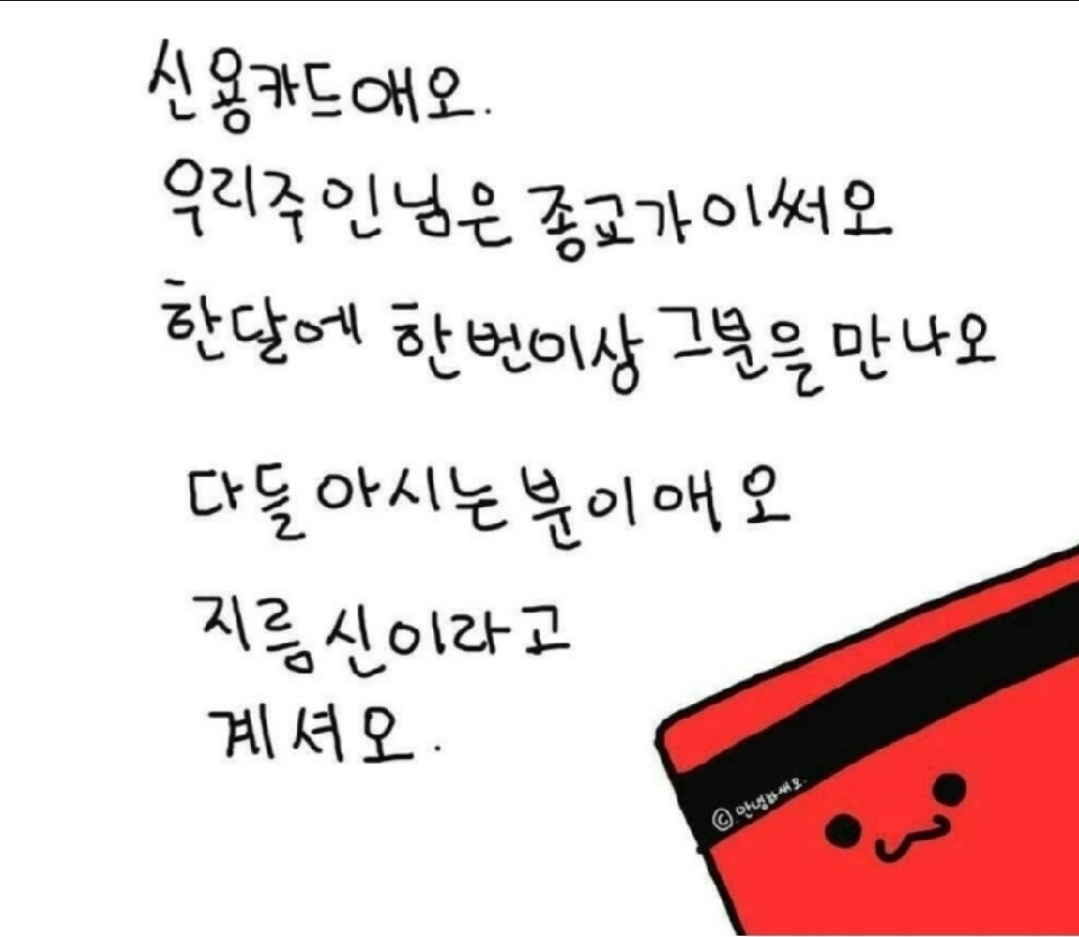 신용카드애오.
우리주인님은 종교가이써오
한달에 한번이상 그분을 만나오
다들 아시는 분이애오
지름신이라고
계셔오.
ⓒ안녕하새오.